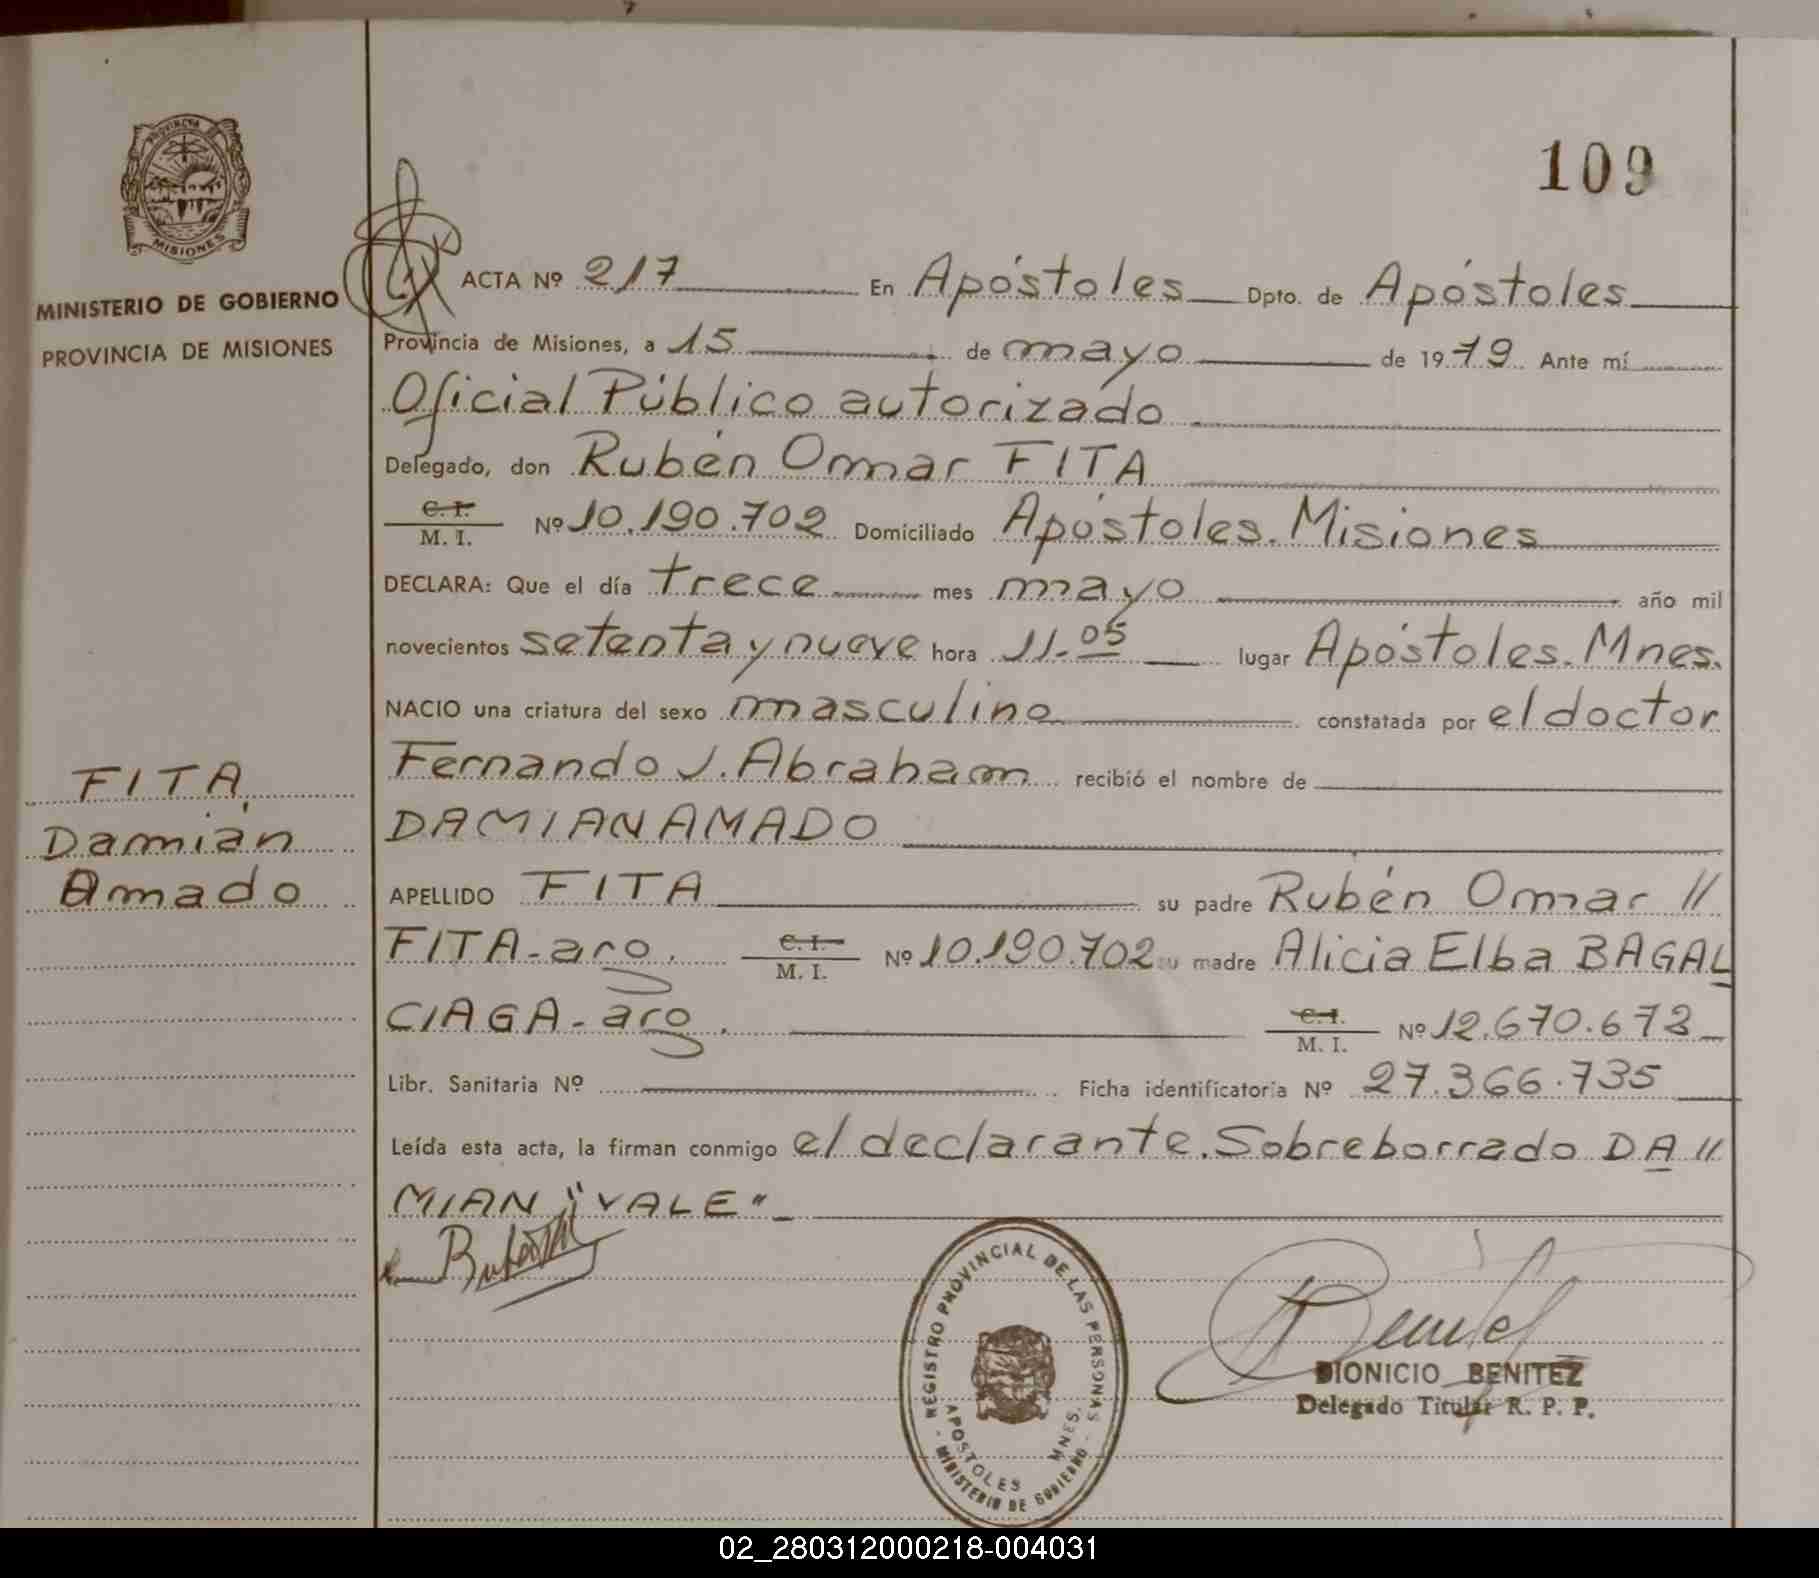 109
PROVINCIA DE
MISIONES
MINISTERIO DE GOBIERNO
PROVINCIA DE MISIONES
FITA,
Damián
Amado
ACTA Nº 217 En Apóstoles Dpto. de Apóstoles
Provincia de Misiones, a 15 de mayo de 1979. Ante mí
Oficial Público autorizado
Delegado, don Rubén Omar FITA
C. I.
M. I. Nº 10.190.702 Domiciliado Apóstoles. Misiones
DECLARA: Que el día trece mes mayo año mil
novecientos setenta y nueve hora 11.05 lugar Apóstoles. Mnes.
NACIO una criatura del sexo masculino constatada por el doctor
Fernando J. Abraham recibió el nombre de
DAMIAN AMADO
APELLIDO FITA su padre Rubén Omar //
FITA-arg. C. I. M. I. Nº 10.190.702 su madre Alicia Elba BAGAL
CIAGA-arg. C. I. M. I. Nº 12.670.673
Libr. Sanitaria Nº Ficha identificatoria Nº 27.366.735
Leída esta acta, la firman conmigo el declarante. Sobreborrado DA //
MIAN "VALE"
REGISTRO PROVINCIAL DE LAS PERSONAS
APOSTOLES MNES.
- MINISTERIO DE GOBIERNO -
DIONICIO BENITEZ
Delegado Titular R. P. P.
02_280312000218-004031